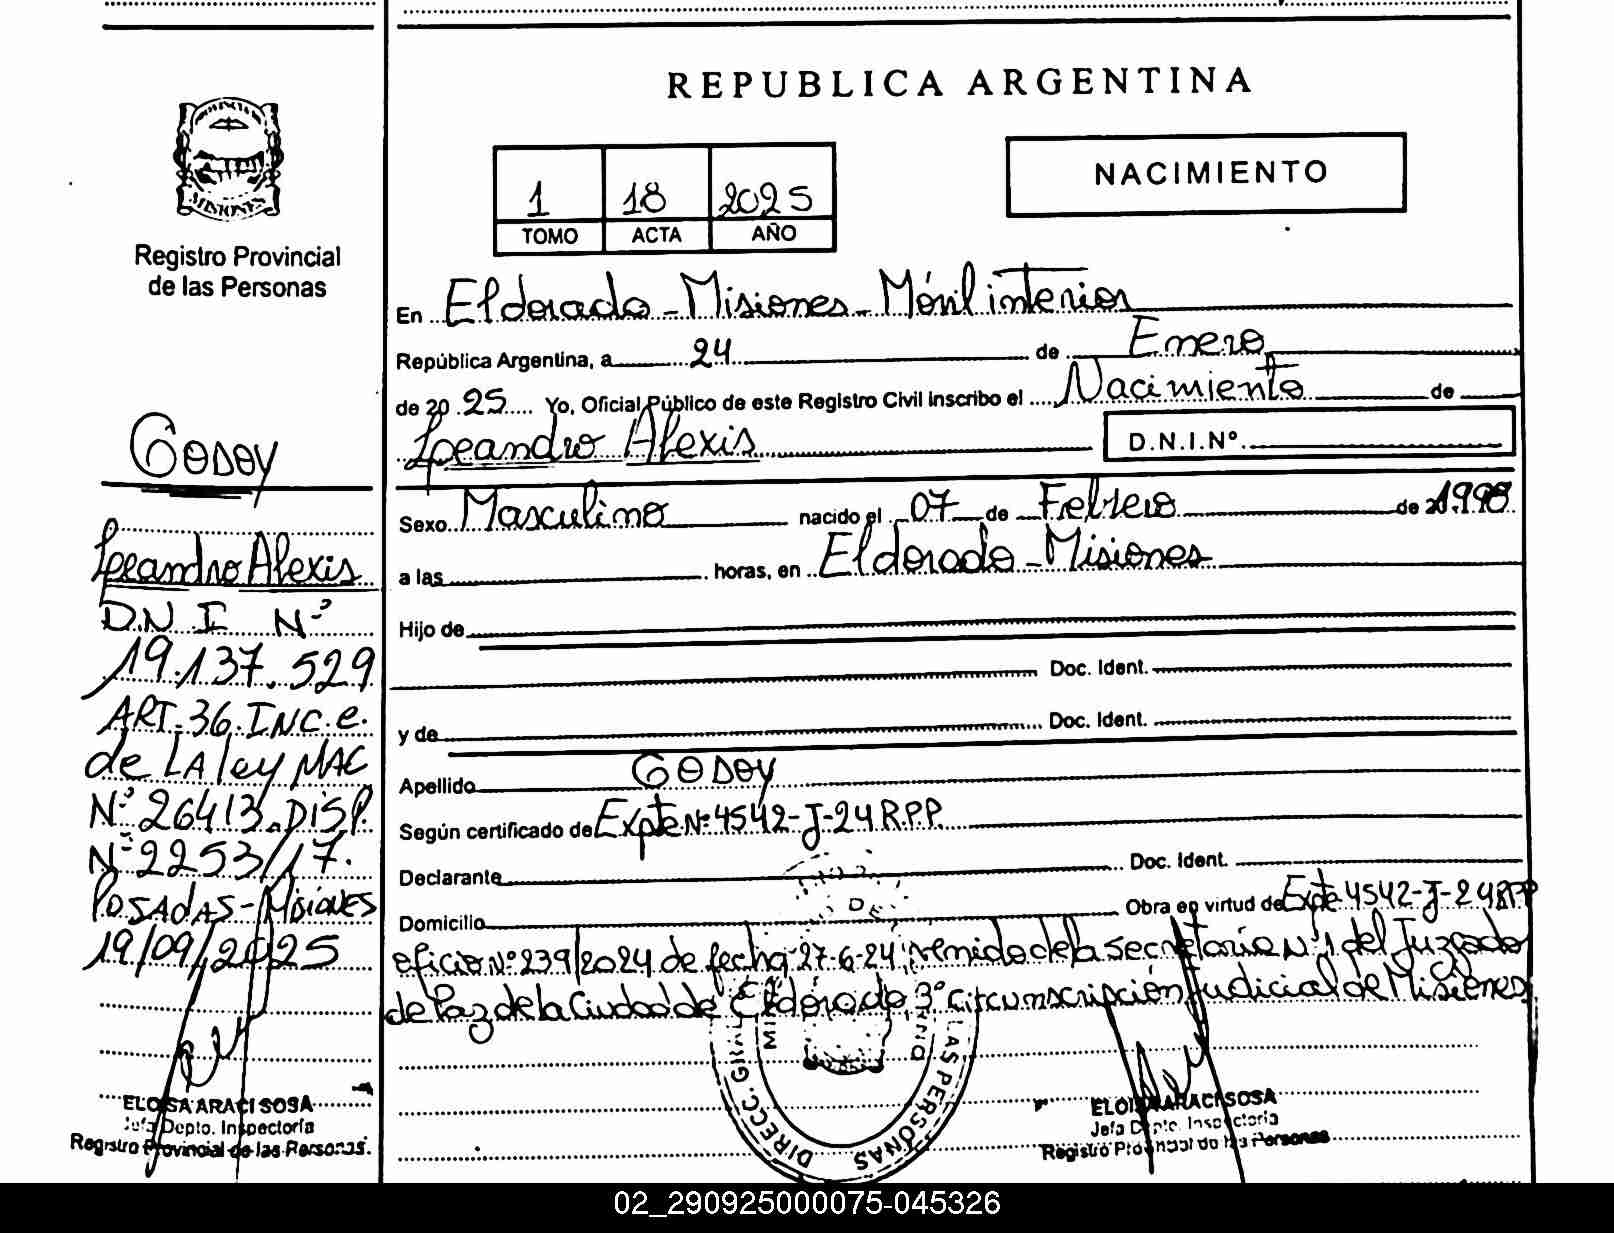 REPUBLICA ARGENTINA
MISIONES
Registro Provincial
de las Personas
1 18 2025
TOMO ACTA AÑO
NACIMIENTO
En Eldorado - Misiones - Móvil interior
República Argentina, a 24 de Enero
de 20 25 Yo, Oficial Público de este Registro Civil inscribo el Nacimiento de
Leandro Alexis D.N.I.Nº
Sexo Masculino nacido el 07 de Febrero de 1998
a las horas, en Eldorado - Misiones
Hijo de
Doc. Ident.
y de Doc. Ident.
Apellido GODOY
Según certificado de Expte Nº 4542-J-24 R.P.P.
Declarante Doc. Ident.
Domicilio Obra en virtud de Expte 4542-J-24 RPP
oficio Nº 239/2024 de fecha 27-6-24, remido de la Secretaria Nº 1 del Juzgado
de Paz de la Ciudad de Eldorado 3º circunscripción Judicial de Misiones
GODOY
Leandro Alexis
D.N I Nº
19.137.529
ART. 36. INC. e.
de LA ley NAC
Nº 26413. DISP.
Nº 2253/17.
POSADAS - MISIONES
19/09/2025
ELOISA ARACI SOSA
Jefa Depto. Inspectoría
Registro Provincial de las Personas.
DIRECC. GRAL
LAS PERSONAS
ELOISA ARACI SOSA
Jefa Depto. Inspectoría
Registro Provincial de las Personas
02_290925000075-045326